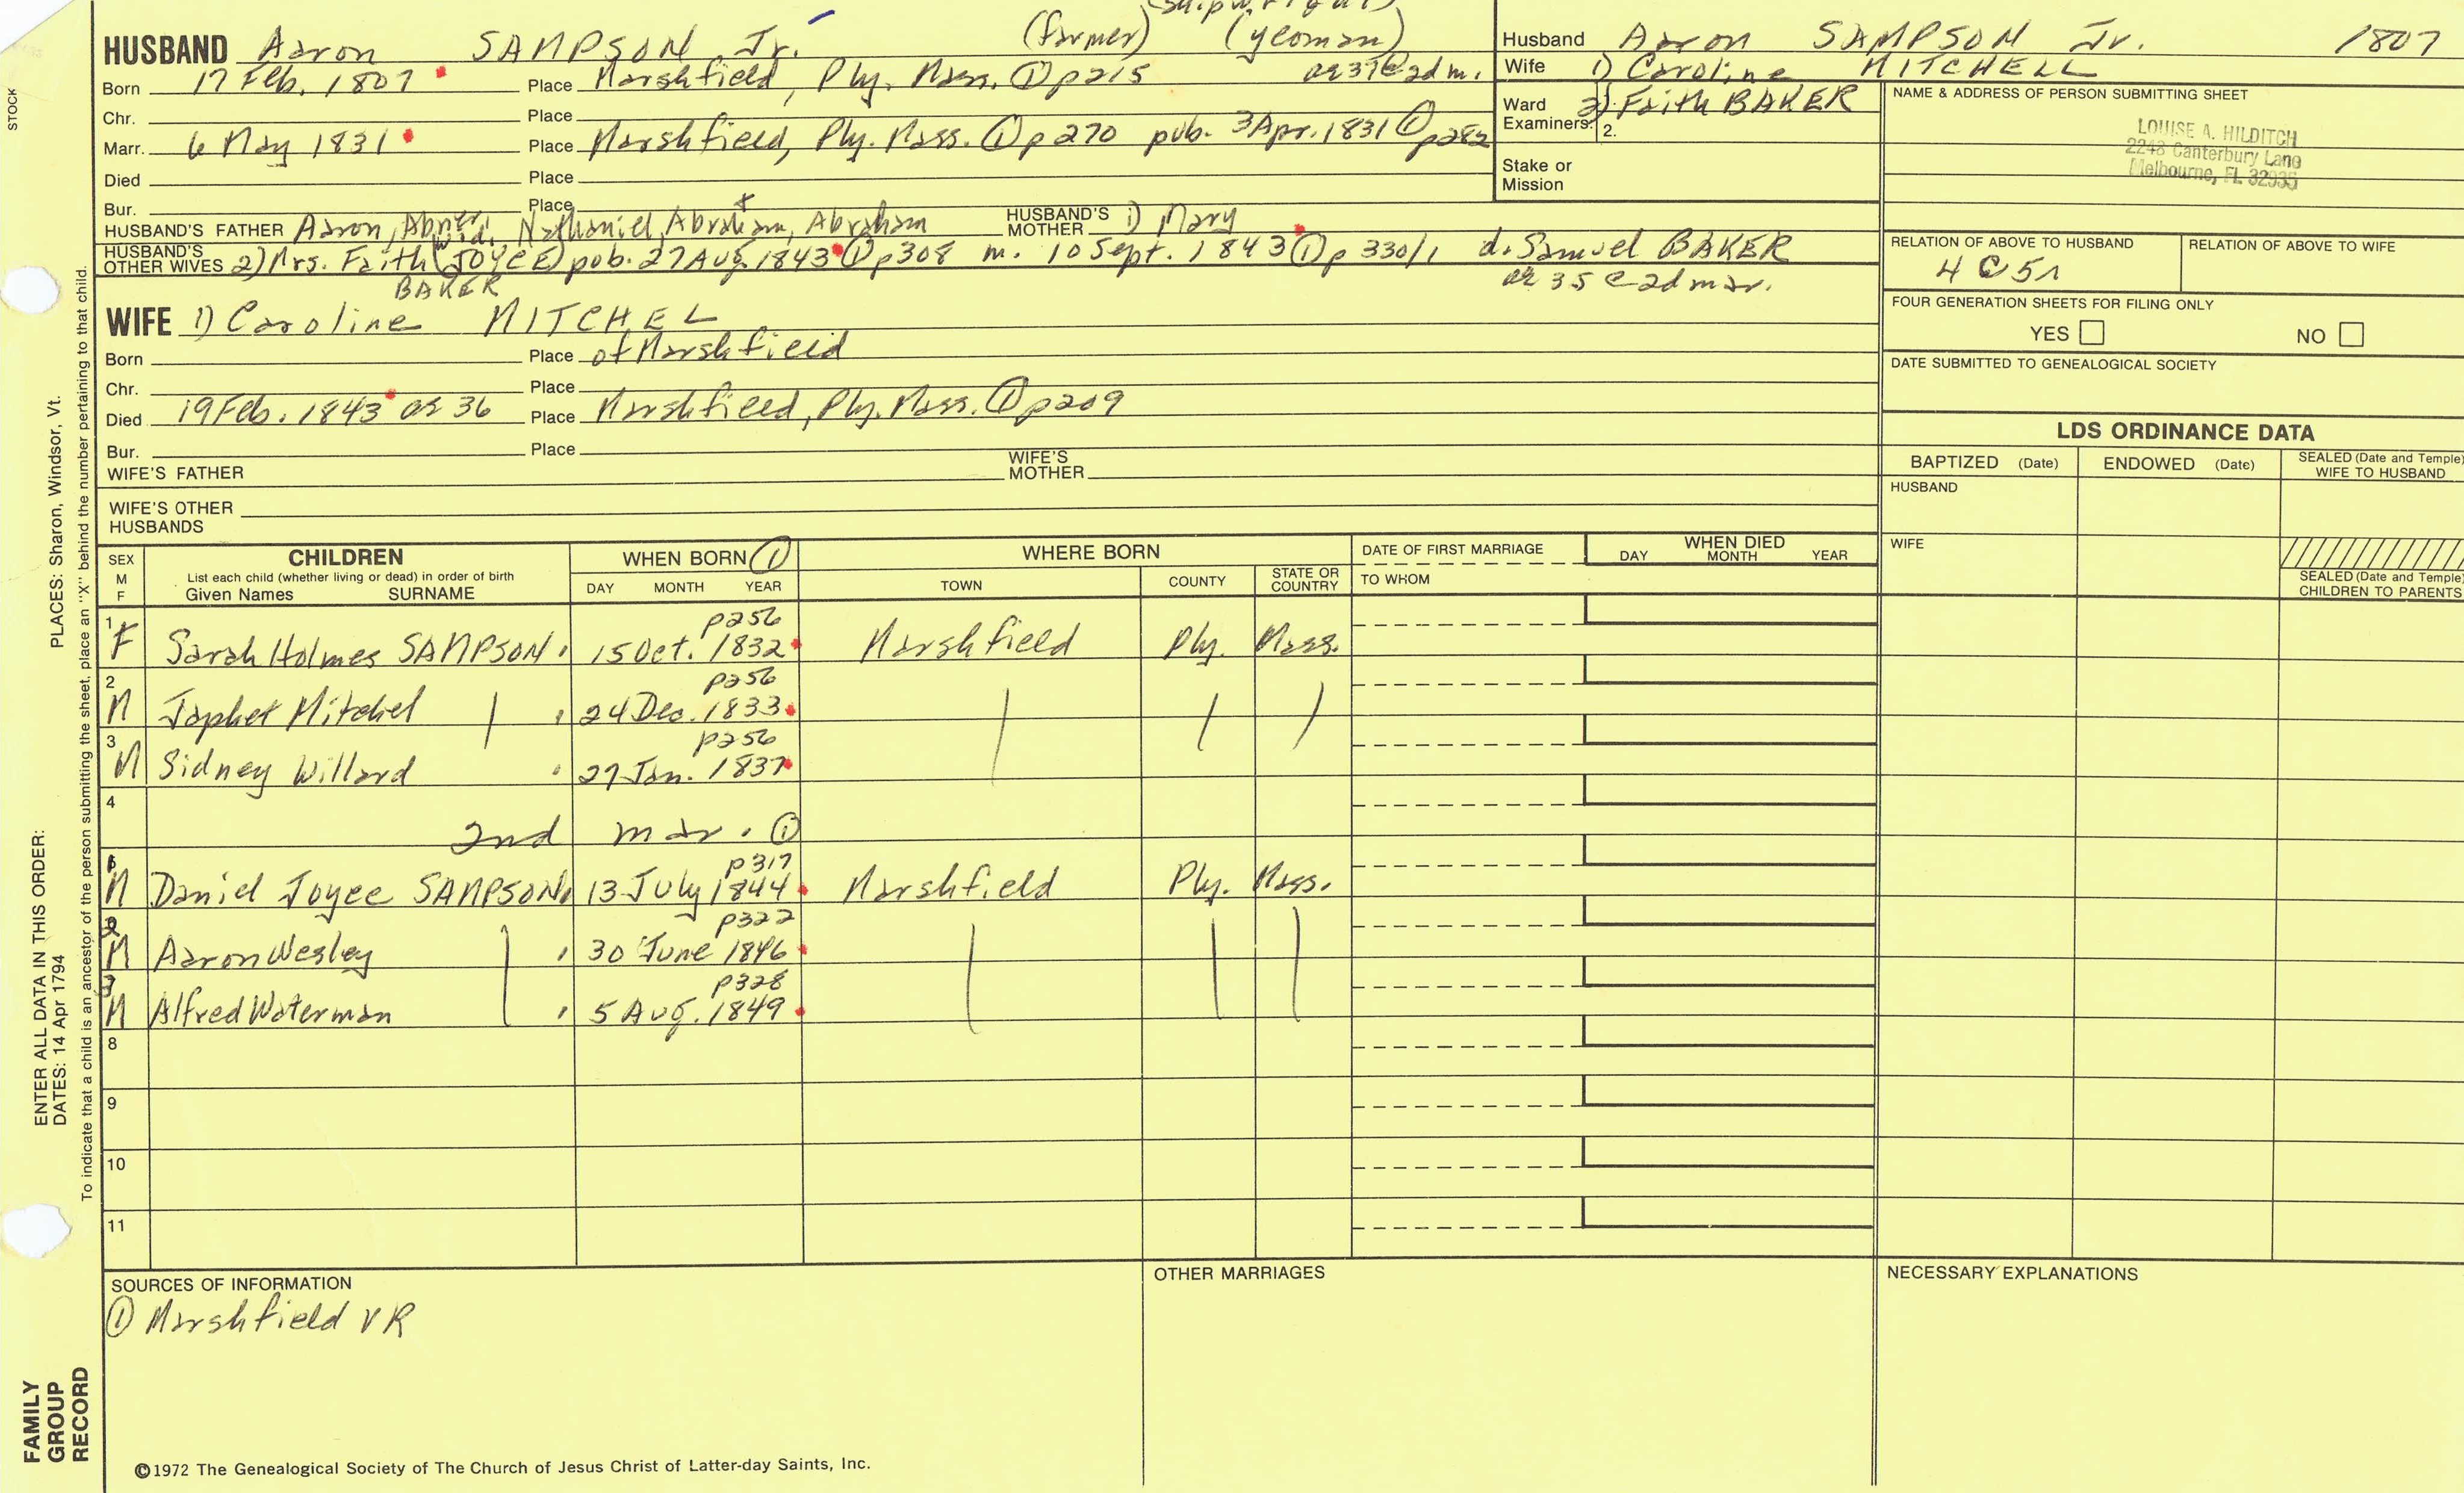 (Shipwright)
HUSBAND Aaron SAMPSON Jr. (farmer) (yeoman)
Born 17 Feb. 1807 Place Marshfield, Ply. Mass. ① p215 ae 37 @ 2d m.
Chr. Place
Marr. 6 May 1831 Place Marshfield, Ply. Mass. ① p270 pub. 3 Apr. 1831 ① p282
Died Place
Bur. Place
HUSBAND'S FATHER Aaron, Abner, Nathaniel, Abraham, Abraham HUSBAND'S MOTHER 1) Mary
HUSBAND'S OTHER WIVES 2) Mrs. Faith (JOYCE) wid. pub. 27 Aug. 1843 ① p308 m. 10 Sept. 1843 ① p330/1 d. Samuel BAKER
BAKER ae 35 @ 2d mar.
WIFE 1) Caroline MITCHEL
Born Place of Marshfield
Chr. Place
Died 19 Feb. 1843 ae 36 Place Marshfield, Ply. Mass. ① p209
Bur. Place
WIFE'S FATHER WIFE'S MOTHER
WIFE'S OTHER HUSBANDS
Husband Aaron SAMPSON Jr. 1807
Wife 1) Caroline MITCHELL
2) Faith BAKER
Ward Examiners: 2.
Stake or Mission
NAME & ADDRESS OF PERSON SUBMITTING SHEET
LOUISE A. HILDITCH
2248 Canterbury Lane
Melbourne, FL 32935
RELATION OF ABOVE TO HUSBAND RELATION OF ABOVE TO WIFE
4C5r
FOUR GENERATION SHEETS FOR FILING ONLY
YES NO
DATE SUBMITTED TO GENEALOGICAL SOCIETY
LDS ORDINANCE DATA
BAPTIZED (Date) ENDOWED (Date) SEALED (Date and Temple) WIFE TO HUSBAND
HUSBAND
WIFE
SEALED (Date and Temple) CHILDREN TO PARENTS
SEX M F CHILDREN WHEN BORN ① WHERE BORN DATE OF FIRST MARRIAGE WHEN DIED
List each child (whether living or dead) in order of birth
Given Names SURNAME DAY MONTH YEAR TOWN COUNTY STATE OR COUNTRY TO WHOM DAY MONTH YEAR
p256
1 F Sarah Holmes SAMPSON 15 Oct. 1832 Marshfield Ply. Mass.
p256
2 M Japhet Mitchel 24 Dec. 1833
p256
3 M Sidney Willard 27 Jan. 1837
4
2nd mar. ①
p317
1 M Daniel Joyce SAMPSON 13 July 1844 Marshfield Ply. Mass.
p322
2 M Aaron Wesley 30 June 1846
p328
3 M Alfred Waterman 5 Aug. 1849
8
9
10
11
SOURCES OF INFORMATION OTHER MARRIAGES NECESSARY EXPLANATIONS
① Marshfield VR
©1972 The Genealogical Society of The Church of Jesus Christ of Latter-day Saints, Inc.
STOCK
PLACES: Sharon, Windsor, Vt.
ENTER ALL DATA IN THIS ORDER:
DATES: 14 Apr 1794
To indicate that a child is an ancestor of the person submitting the sheet, place an "X" behind the number pertaining to that child.
FAMILY GROUP RECORD